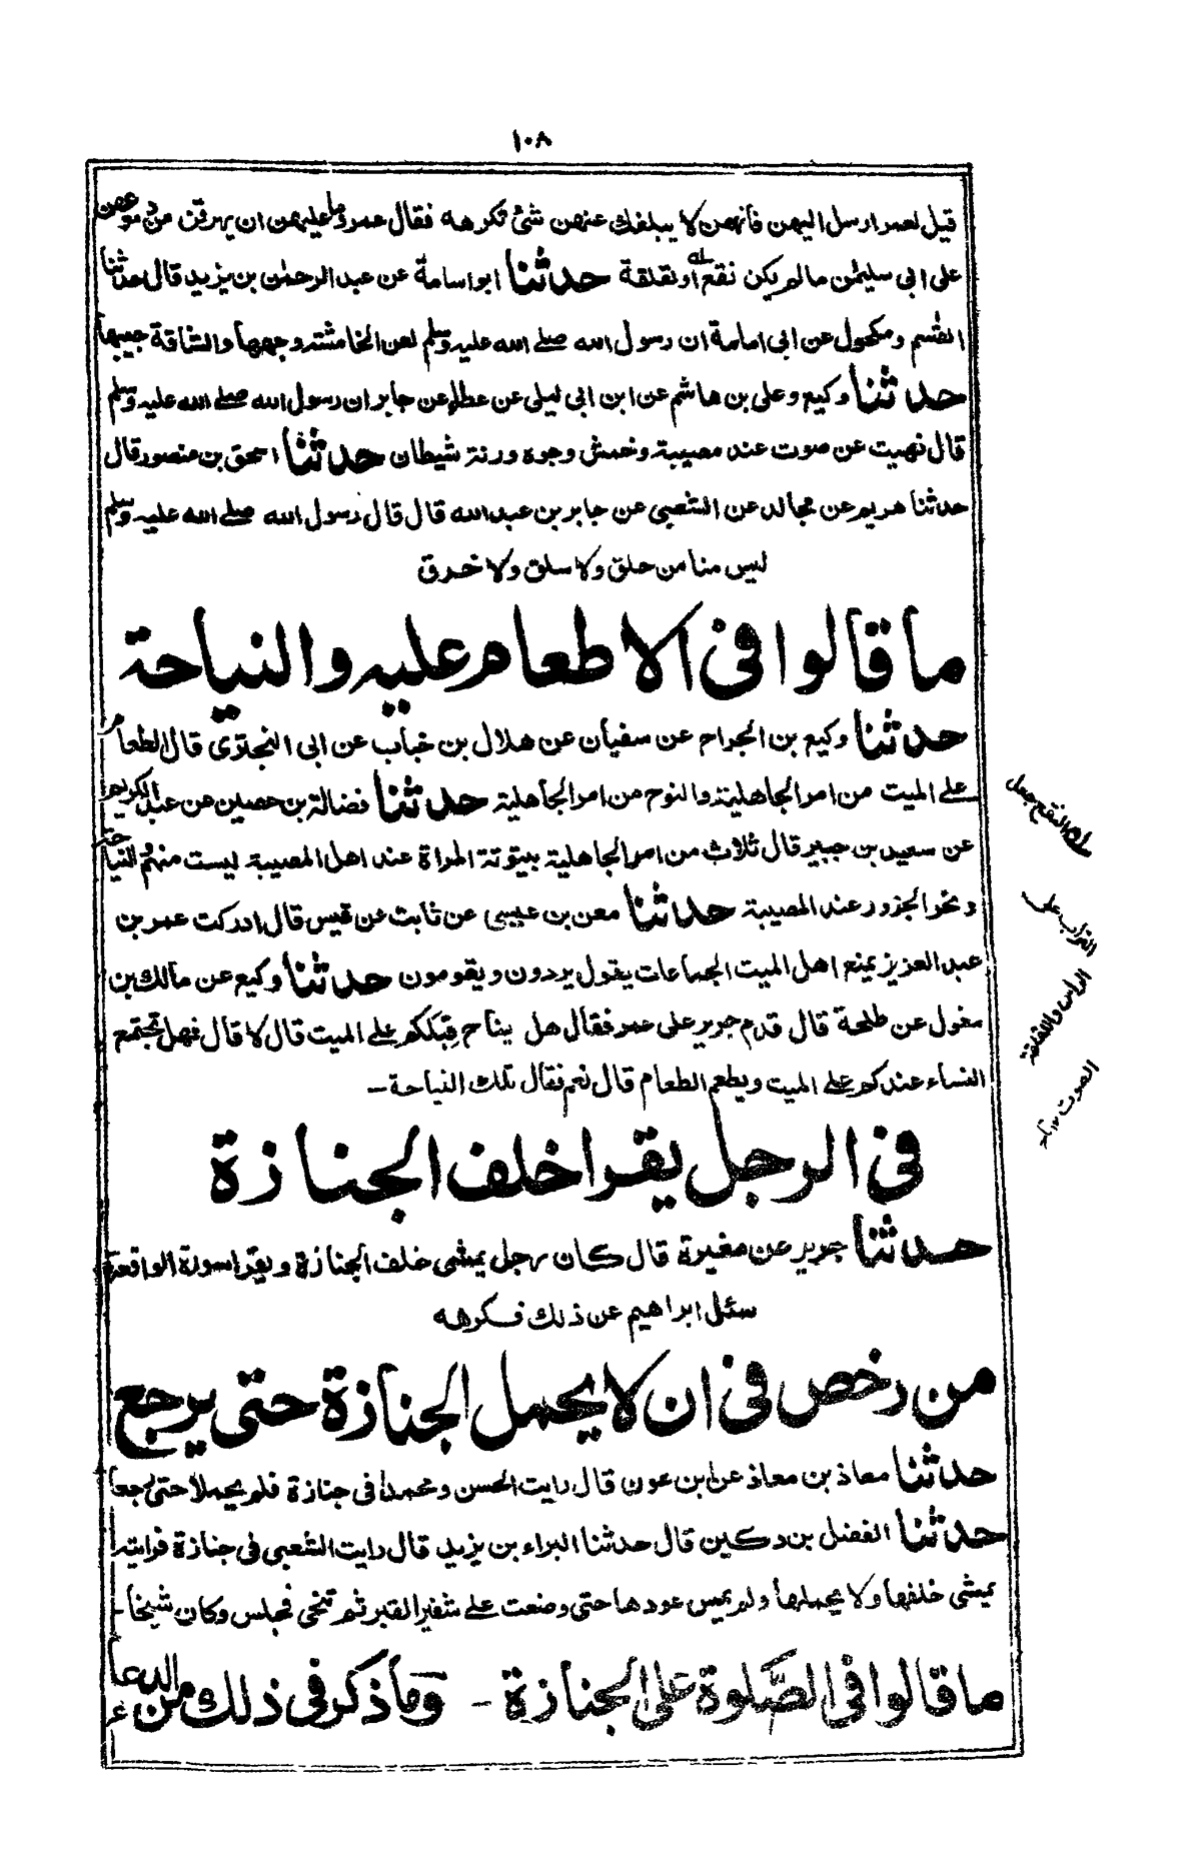 ١٠٨
قيل لعمر ارسل اليهن فأنهن لا يبلغك عنهن شئ تكرهه فقال عمر وما عليهن ان يهرقن من دموعهن
على ابى سليمٰن مالم يكن نقع له اونقلقة حدثنا ابواسامة عن عبد الرحمٰن بن يزيد قال حدثنا
القٰسم ومكحول عن ابى امامة ان رسول الله صلے الله عليه وسلم لعن الخامشة وجهها والشاقة جيبها
حدثنا وكيع وعلى بن هاشم عن ابن ابى ليلى عن عطاء عن جابر ان رسول الله صلے الله عليه وسلم
قال نهيت عن صوت عند مصيبة وخمش وجوه ورنة شيطان حدثنا اسحٰق بن منصور قال
حدثنا هريم عن مجالد عن الشعبى عن جابر بن عبد الله قال قال رسول الله صلے الله عليه وسلم
ليس منا من حلق ولا سلق ولا خرق
ما قالوا فى الاطعام عليه والنياحة
حدثنا وكيع بن الجراح عن سفيان عن هلال بن خباب عن ابى البخترى قال الطعام
علے الميت من امر الجاهلية والنوح من امر الجاهلية حدثنا فضالة بن حصين عن عبد الكريم
عن سعيد بن جبير قال ثلاث من امر الجاهلية بيتوتة المراة عند اهل المصيبة ليست منهم والنياحة
ونحر الجزور عند المصيبة حدثنا معن بن عيسى عن ثابت عن قيس قال ادركت عمر بن
عبد العزيز يمنع اهل الميت الجماعات يقول يردون ويقومون حدثنا وكيع عن مالك بن
مغول عن طلحة قال قدم جرير على عمر فقال هل يناح قبلكم علے الميت قال لا قال فهل تجتمع
النساء عندكم علے الميت ويطعم الطعام قال نعم فقال تلك النياحة-
فى الرجل يقرا خلف الجنازة
حدثنا جرير عن مغيرة قال كان رجل يمشى خلف الجنازة ويقرا سورة الواقعة
سئل ابراهيم عن ذلك فكرهه
من رخص فى ان لا يحمل الجنازة حتى يرجع
حدثنا معاذ بن معاذ عن ابن عون قال رايت الحسن ومحمدا فى جنازة فلم يحملا حتى رجعا
حدثنا الفضل بن دكين قال حدثنا البراء بن يزيد قال رايت الشعبى فى جنازة فرايته
يمشى خلفها ولا يحملها ولم يمس عودها حتى وضعت علے شفير القبر ثم تنحى فجلس وكان شيخا-
ما قالوا فى الصَّلوة على الجنازة - وما ذكر فى ذلك من الدعاء
له النقع جعل
التراب على
الراس واللقلقة
الصوت ١٢